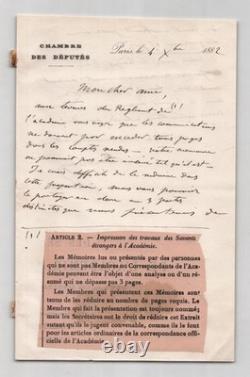 CHAMBRE
DES DÉPUTÉS
Paris le 4 Xbre 1882
Mon cher ami,
aux termes du Règlement de (1)
l'académie vous voyez que les communications
ne doivent pas excéder trois pages
dans les comptes rendus votre mémoire
ne pourrait pas être inséré tel qu'il est
difficile de le réduire dans
cette proportion, mais vous pouvez
le partager en deux ou 3 parties
distinctes que nous
(1)
ARTICLE 2. — Impression des travaux des Savants
étrangers à l'Académie.
Les Mémoires lus ou présentés par des personnes
qui ne sont pas Membres ou Correspondants de l'Aca-
démie peuvent être l'objet d'une analyse ou d'un ré-
sumé qui ne dépasse pas 3 pages.
Les Membres qui présentent ces Mémoires sont
tenus de les réduire au nombre de pages requis. Le
Membre qui fait la présentation est toujours nommé;
mais les Secrétaires ont le droit de réduire cet Extrait
autant qu'ils le jugent convenable, comme ils le font
pour les articles ordinaires de la correspondance offi-
cielle de l'Académie.